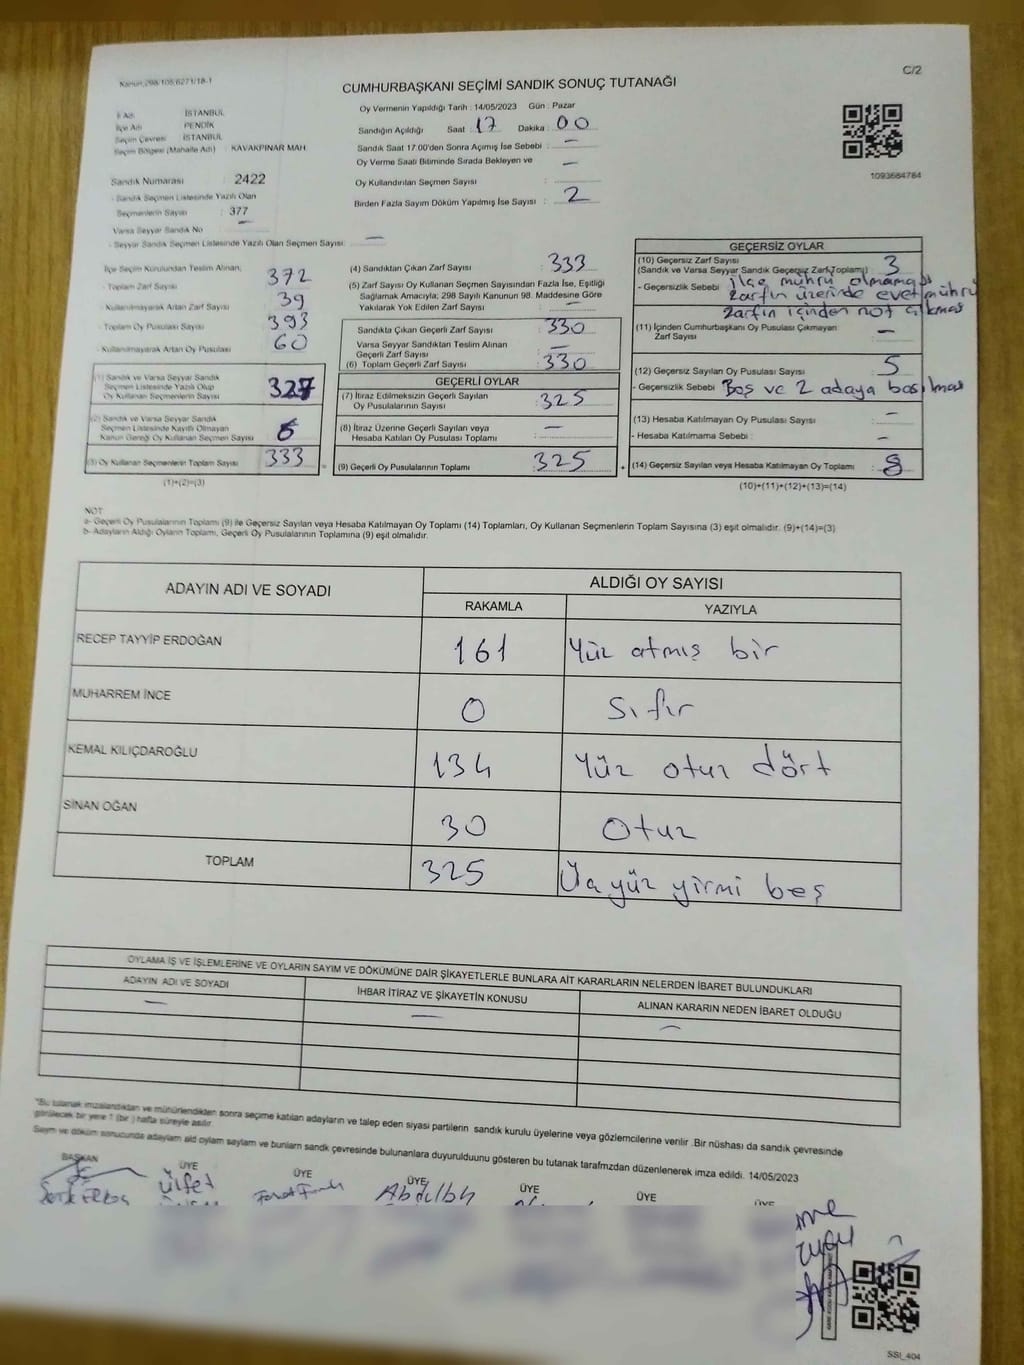 Kanun:298/105,6271/18-1
C/2
CUMHURBAŞKANI SEÇİMİ SANDIK SONUÇ TUTANAĞI
İl Adı İSTANBUL
İlçe Adı PENDİK
Seçim Çevresi İSTANBUL
Seçim Bölgesi (Mahalle Adı) : KAVAKPINAR MAH.
Sandık Numarası : 2422
- Sandık Seçmen Listesinde Yazılı Olan
Seçmenlerin Sayısı : 377
Varsa Seyyar Sandık No : —
- Seyyar Sandık Seçmen Listesinde Yazılı Olan Seçmen Sayısı: —
Oy Vermenin Yapıldığı Tarih : 14/05/2023 Gün : Pazar
Sandığın Açıldığı Saat : 17 Dakika : 00
Sandık Saat 17:00'den Sonra Açımış İse Sebebi : —
Oy Verme Saati Bitiminde Sırada Bekleyen ve —
Oy Kullandırılan Seçmen Sayısı :
Birden Fazla Sayım Döküm Yapılmış İse Sayısı : 2
1093684784
İlçe Seçim Kurulundan Teslim Alınan;
- Toplam Zarf Sayısı 372
- Kullanılmayarak Artan Zarf Sayısı 39
- Toplam Oy Pusulası Sayısı 393
- Kullanılmayarak Artan Oy Pusulası 60
(1) Sandık ve Varsa Seyyar Sandık
Seçmen Listesinde Yazılı Olup
Oy Kullanan Seçmenlerin Sayısı 327
(2) Sandık ve Varsa Seyyar Sandık
Seçmen Listesinde Kayıtlı Olmayan
Kanun Gereği Oy Kullanan Seçmen Sayısı 6
(3) Oy Kullanan Seçmenlerin Toplam Sayısı 333
(1)+(2)=(3)
(4) Sandıktan Çıkan Zarf Sayısı : 333
(5) Zarf Sayısı Oy Kullanan Seçmen Sayısından Fazla İse, Eşitliği
Sağlamak Amacıyla; 298 Sayılı Kanunun 98. Maddesine Göre
Yakılarak Yok Edilen Zarf Sayısı : —
Sandıkta Çıkan Geçerli Zarf Sayısı : 330
Varsa Seyyar Sandıktan Teslim Alınan
Geçerli Zarf Sayısı —
(6) Toplam Geçerli Zarf Sayısı : 330
GEÇERLİ OYLAR
(7) İtiraz Edilmeksizin Geçerli Sayılan
Oy Pusulalarının Sayısı : 325
(8) İtiraz Üzerine Geçerli Sayılan veya
Hesaba Katılan Oy Pusulası Toplamı : —
(9) Geçerli Oy Pusulalarının Toplamı : 325
GEÇERSİZ OYLAR
(10) Geçersiz Zarf Sayısı
(Sandık ve Varsa Seyyar Sandık Geçersiz Zarf Toplamı) : 3
- Geçersizlik Sebebi : ilçe mührü olmaması
Zarfın üzerinde evet mührü
Zarfın içinden not çıkması
(11) İçinden Cumhurbaşkanı Oy Pusulası Çıkmayan
Zarf Sayısı : —
(12) Geçersiz Sayılan Oy Pusulası Sayısı : 5
- Geçersizlik Sebebi : Boş ve 2 adaya basılması
(13) Hesaba Katılmayan Oy Pusulası Sayısı : —
- Hesaba Katılmama Sebebi : —
(14) Geçersiz Sayılan veya Hesaba Katılmayan Oy Toplamı : 8
(10)+(11)+(12)+(13)=(14)
NOT
a- Geçerli Oy Pusulalarının Toplamı (9) ile Geçersiz Sayılan veya Hesaba Katılmayan Oy Toplamı (14) Toplamları, Oy Kullanan Seçmenlerin Toplam Sayısına (3) eşit olmalıdır. (9)+(14)=(3)
b- Adayların Aldığı Oyların Toplamı, Geçerli Oy Pusulalarının Toplamına (9) eşit olmalıdır.
ADAYIN ADI VE SOYADI ALDIĞI OY SAYISI
RAKAMLA YAZIYLA
RECEP TAYYİP ERDOĞAN 161 Yüz atmış bir
MUHARREM İNCE 0 Sıfır
KEMAL KILIÇDAROĞLU 134 Yüz otuz dört
SİNAN OĞAN 30 Otuz
TOPLAM 325 Üç yüz yirmi beş
OYLAMA İŞ VE İŞLEMLERİNE VE OYLARIN SAYIM VE DÖKÜMÜNE DAİR ŞİKAYETLERLE BUNLARA AİT KARARLARIN NELERDEN İBARET BULUNDUKLARI
ADAYIN ADI VE SOYADI İHBAR İTİRAZ VE ŞİKAYETİN KONUSU ALINAN KARARIN NEDEN İBARET OLDUĞU
— — —
*Bu tutanak imzalandıktan ve mühürlendikten sonra seçime katılan adayların ve talep eden siyasi partilerin sandık kurulu üyelerine veya gözlemcilerine verilir .Bir nüshası da sandık çevresinde
görülecek bir yere 1 (bir ) hafta süreyle asılır.
Sayım ve döküm sonucunda adayların ald oyların sayların ve bunların sandk çevresinde bulunanlara duyurulduunu gösteren bu tutanak tarafmzdan düzenlenerek imza edildi. 14/05/2023
BAŞKAN ÜYE ÜYE ÜYE ÜYE ÜYE ÜYE
Ülfet
SSI_404